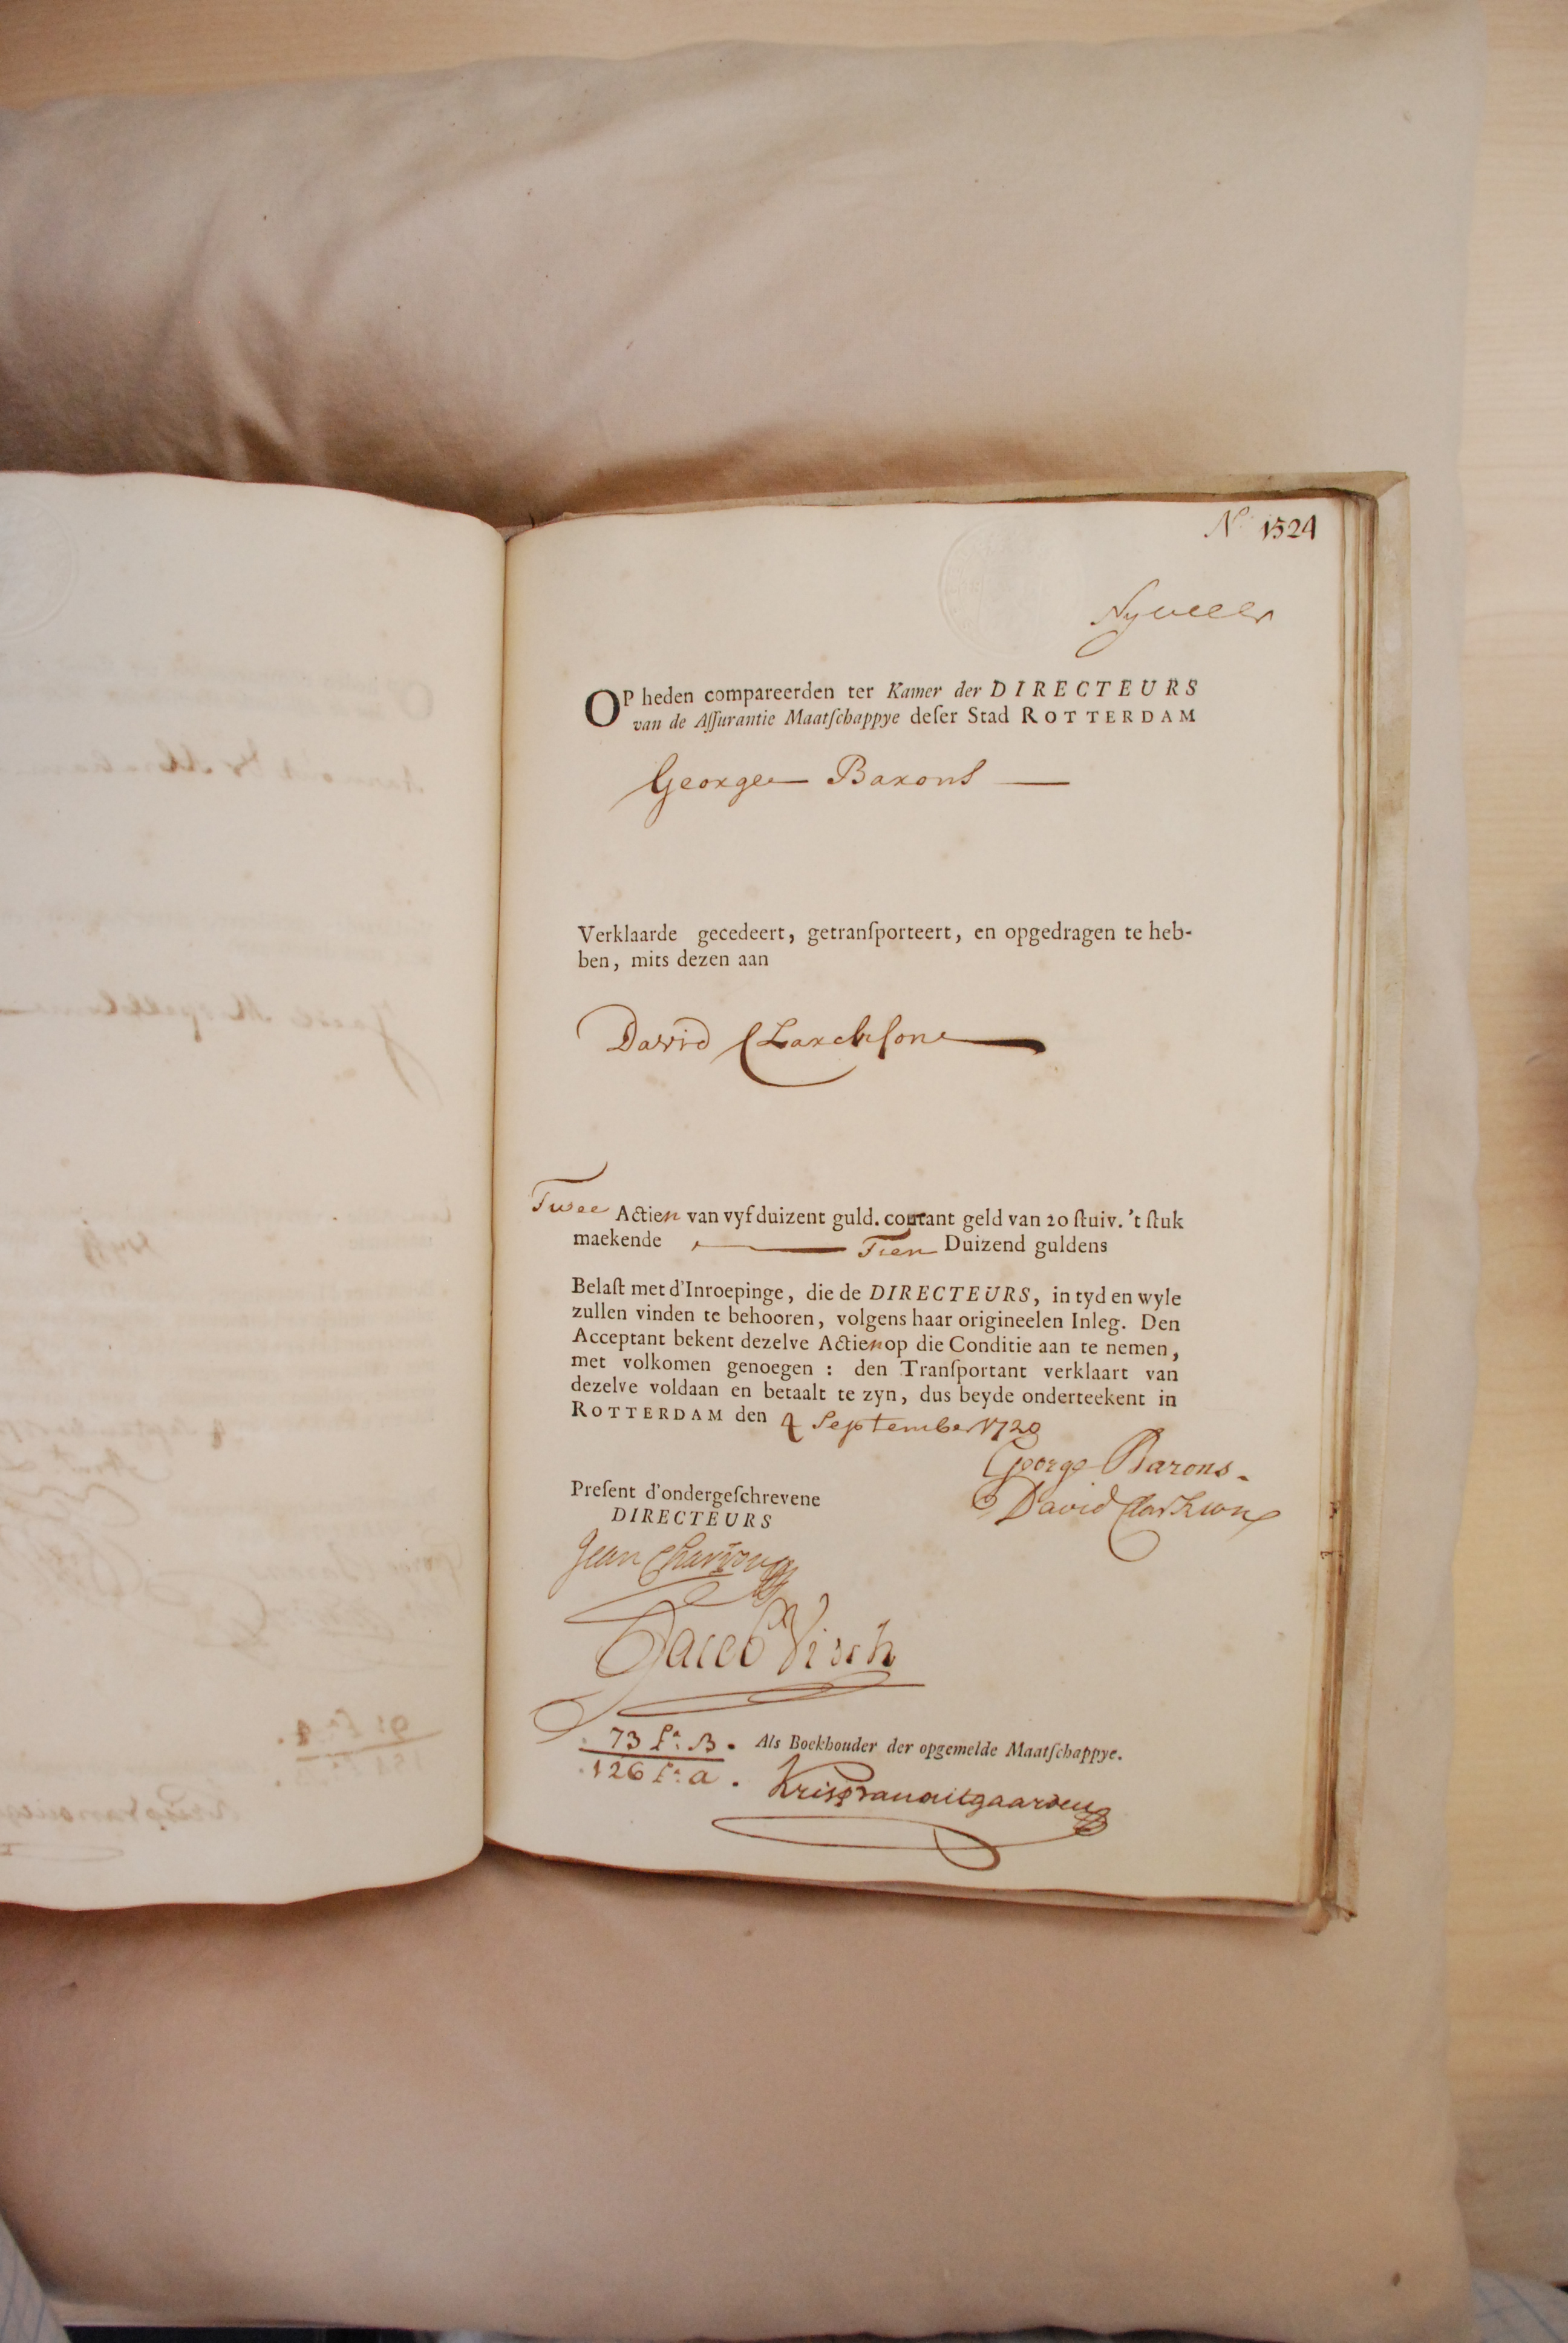 N 1524
OP heden compareerden ter Kamer der DIRECTEURS
van de Assurantie Maatschappye deser Stad ROTTERDAM
George Barons
Verklaarde gecedeert, getransporteert, en opgedragen te heb-
ben, mits dezen aan
David Clarckson
Twee Actien van vyf duizent guld. courant geld van 20 stuiv. 't stuk
maekende Tien Duizend guldens
Belast met d'Inroepinge, die de DIRECTEURS, in tyd en wyle
zullen vinden te behooren, volgens haar origineelen Inleg. Den
Acceptant bekent dezelve Actien op die Conditie aan te nemen,
met volkomen genoegen : den Transportant verklaart van
dezelve voldaan en betaalt te zyn, dus beyde onderteekent in
ROTTERDAM den 4 September 1720
George Barons.
David Clarkson
Present d'ondergeschrevene
DIRECTEURS
Jean
Jacob Visch
73 f.o B. Als Boekhouder der opgemelde Maatschappye.
126 f.o a.